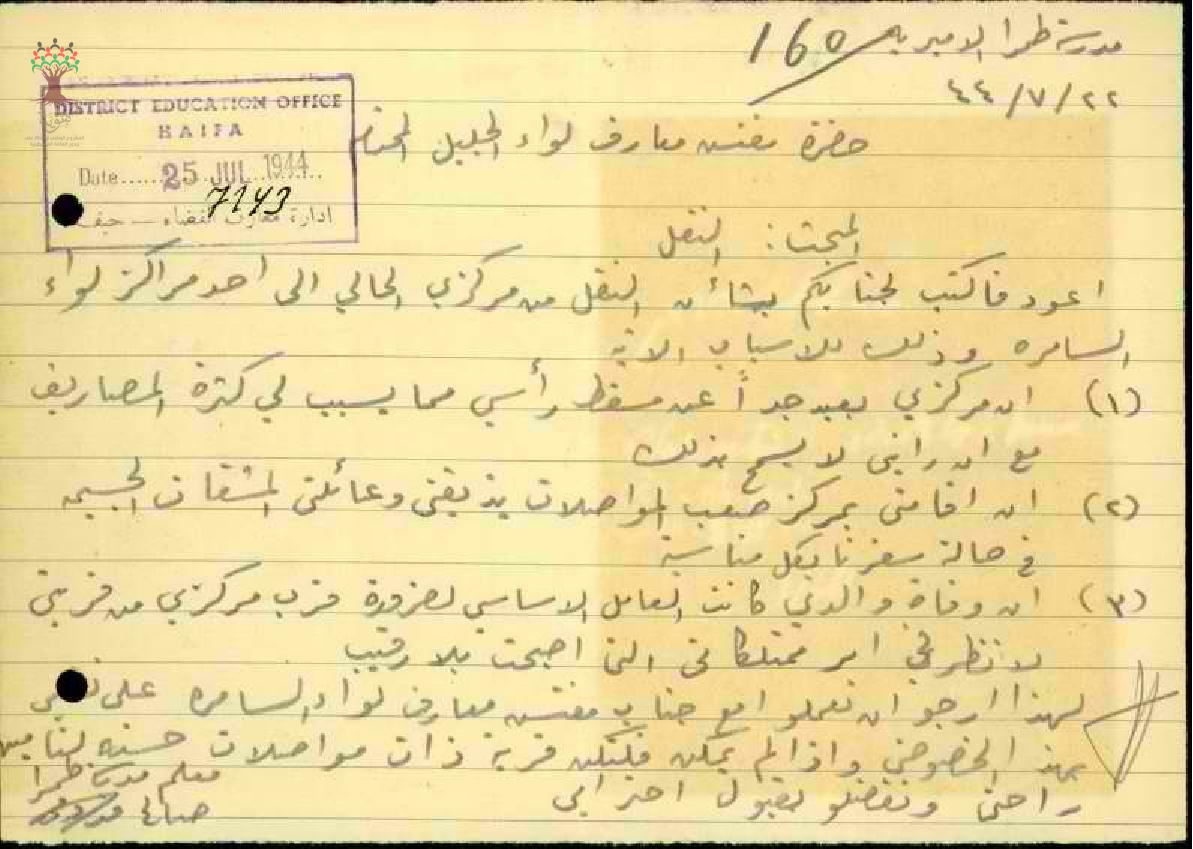 مدرسة طمرا الاميريه
165
٤٤/٧/٢٢
DISTRICT EDUCATION OFFICE
HAIFA
Date 25 JUL 1944
7143
ادارة معارف القضاء — حيفا
حضرة مفتش معارف لواء الجليل المحترم
المبحث: النقل
اعود فاكتب لجنابكم بشأن النقل من مركزي الحالي الى احد مراكز لواء
السامره وذلك للاسباب الاتيه
(١) ان مركزي بعيد جداً عن مسقط رأسي مما يسبب لي كثرة المصاريف
مع ان راتبي لا يسمح بذلك
(٢) ان اقامتي بمركز صعب المواصلات يذيقني وعائلتي المشقات الجسيمه
في حالة سفرنا بكل مناسبة
(٣) ان وفاة والدي كانت العامل الاساسي لضرورة قرب مركزي من قريتي
لانظر في امر ممتلكاتي التي اصبحت بلا رقيب
لهذا ارجو ان تعملوا مع جناب مفتش معارف لواء السامره على نقلي
بهذا الخصوص واذا لم يمكن فلتكن قرية ذات مواصلات حسنه لتأمين
راحتي وتفضلو بقبول احترامي
معلم مدرسة طمرا
صالح